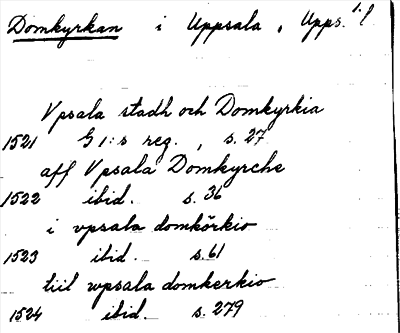 Domkyrkan i Uppsala, Upps. l.
Vpsala stadh och Domkyrkia
1521 G I:s reg., s. 27
aff Vpsala Domkyrche
1522 ibid. s. 36
i vpsala domkörkio
1523 ibid. s. 61
tiil wpsala domkerkio
1524 ibid. s. 279